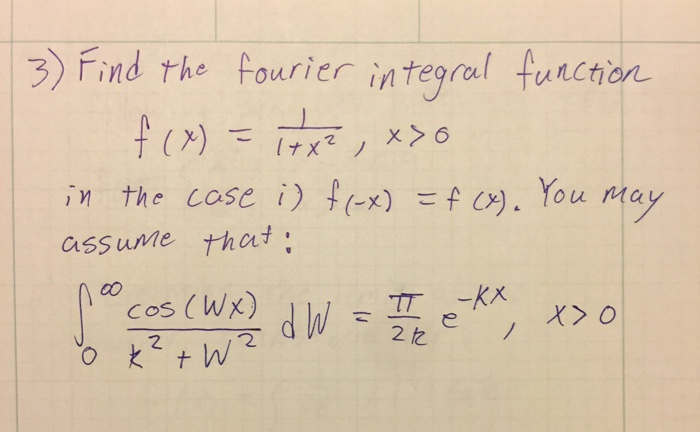 3) Find the fourier integral function
f(x) = 1/(1+x²), x>0
in the case i) f(-x) = f(x). You may
assume that:
∫₀^∞ cos(Wx)/(k²+W²) dW = π/(2k) e^(-kx), x>0